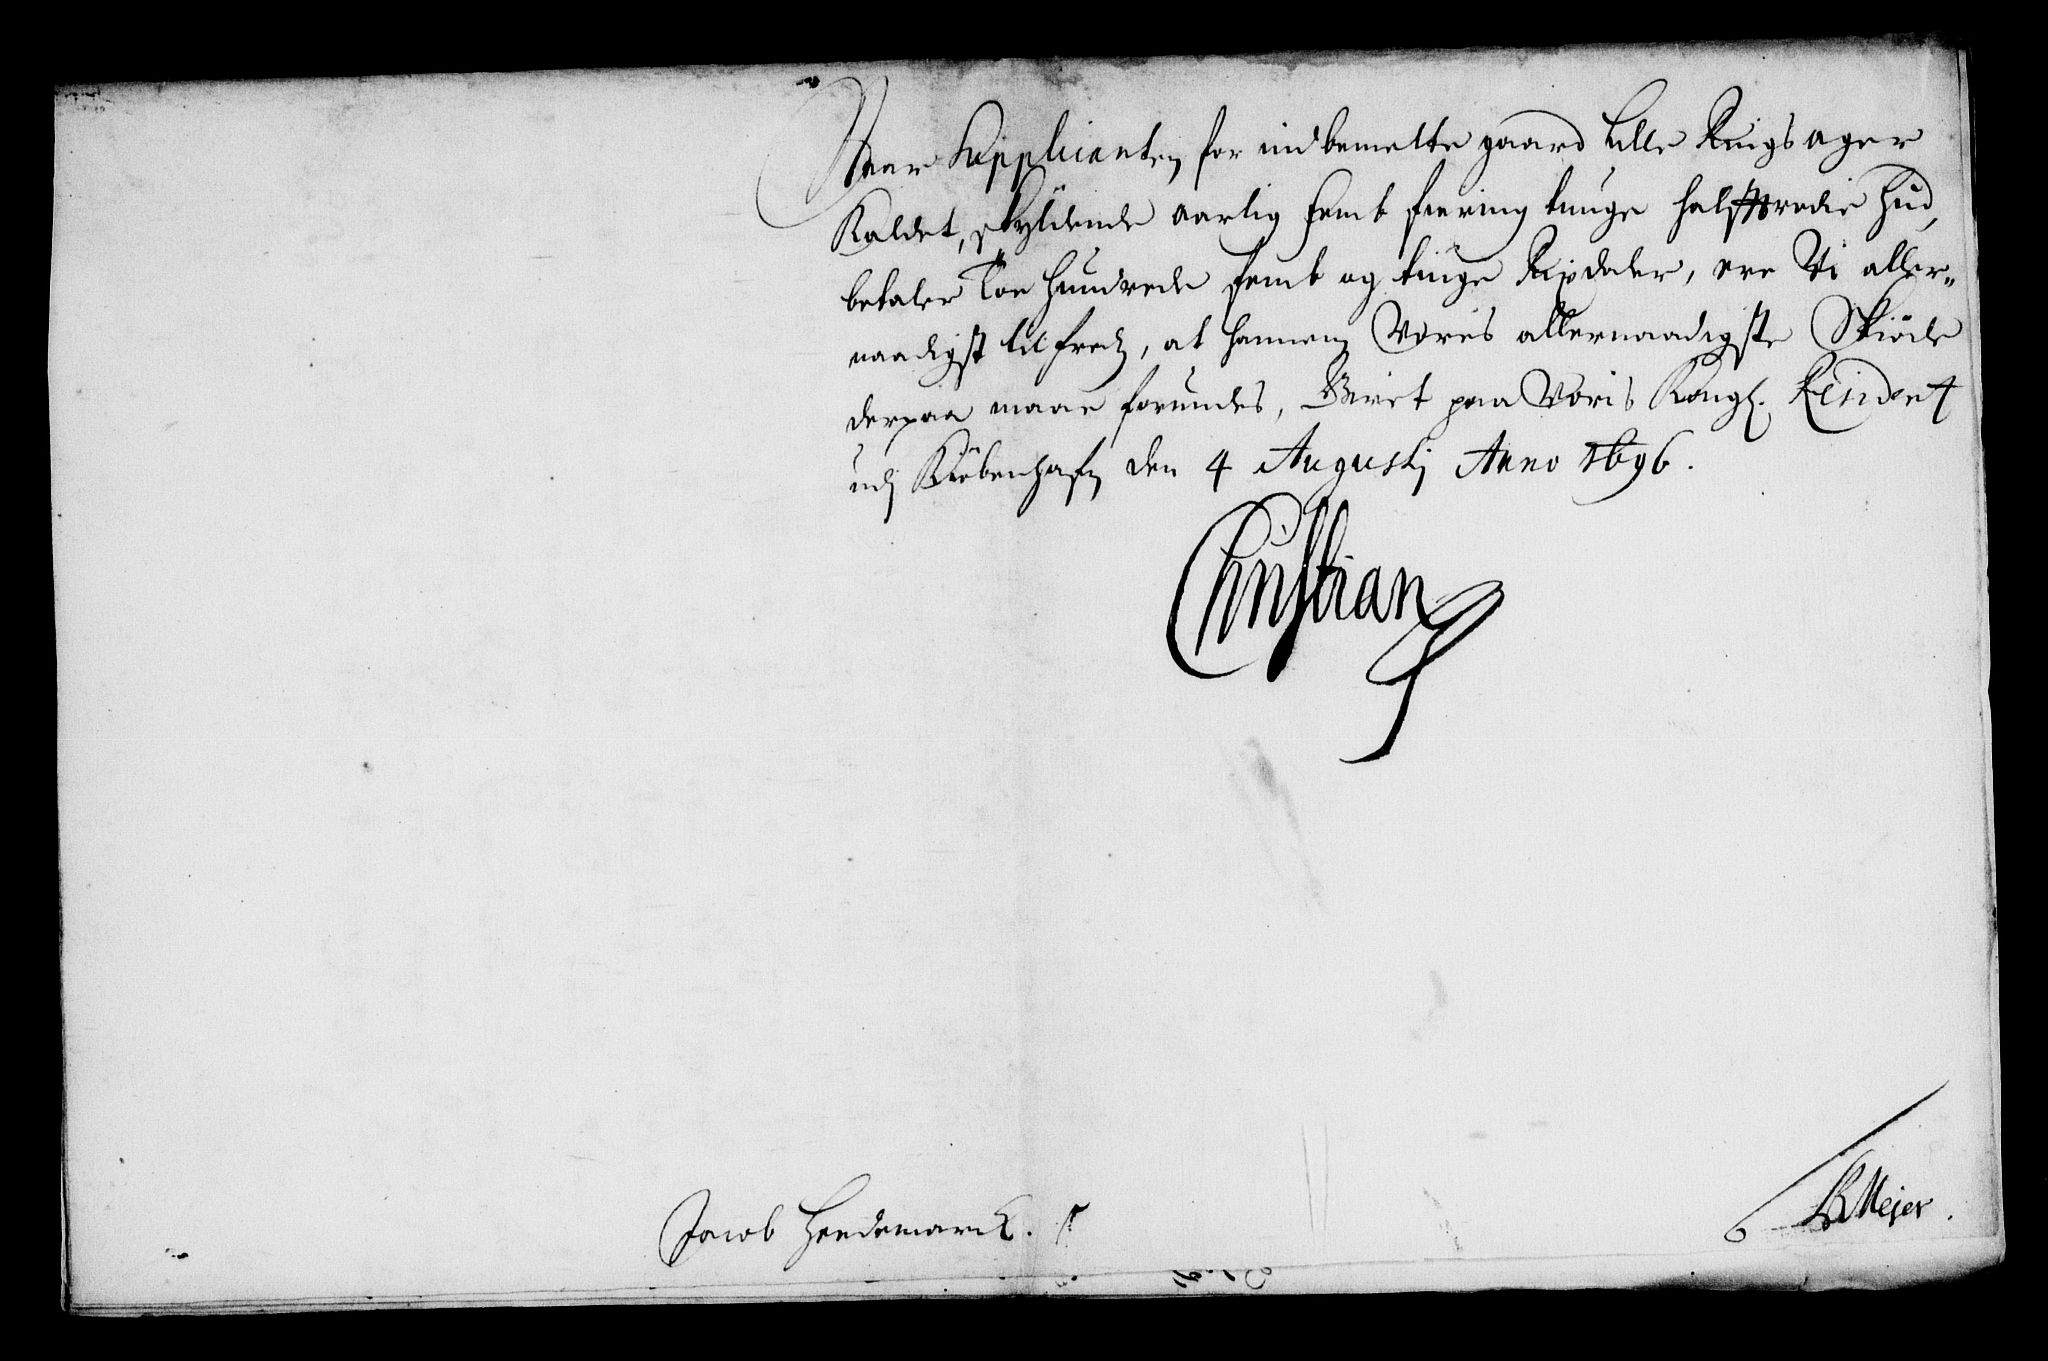 Naar Supplicanten for indbemelte gaard Lille Ringsager
Kaldet, skyldende aarlig femb fiering tunge halfftredie hud,
betaler Toe hundrede femb og tiuge Rixdaler, ere Vi aller-
naadigst tilfredz, at hannem Voris allernaadigste Skiöde
derpaa maae forundes, Givet paa Voris Kongl. Residentz
udj Kiöbenhafn den 4 Augustj Anno 1696.
Christian
Jacob Heedemarck.
Meier.